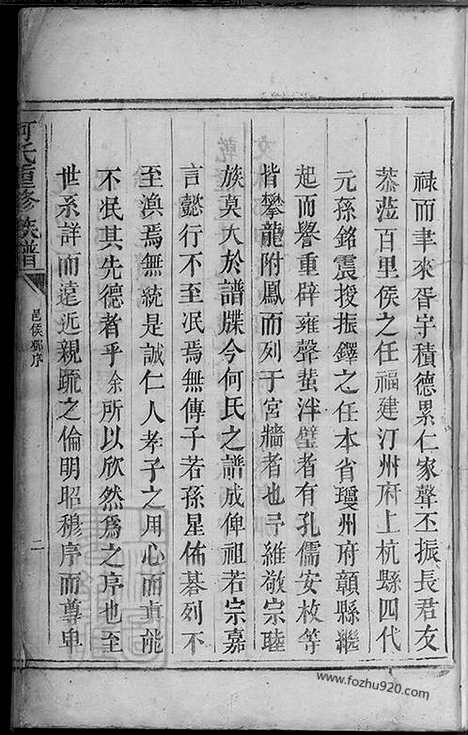 祿而聿來胥宇積德累仁家聲丕振長君友
恭蒞百里侯之任福建汀州府上杭縣四代
元孫銘震授振鐸之任本省瓊州府縣繼
起而譽重辟雍聲蜚泮璧者有孔儒安枚等
皆攀龍附鳳而列于宮牆者也予維敬宗睦
族莫大於譜牒今何氏之譜成俾祖若宗嘉
言懿行不至泯焉無傳子若孫星佈碁列不
至渙焉無統是誠仁人孝子之用心而真能
不泯其先德者乎余所以欣然為之序也至
世系詳而遠近親疏之倫明昭穆序而尊卑
何氏重修族譜
邑侯鄧序
二
www.fozhu920.com